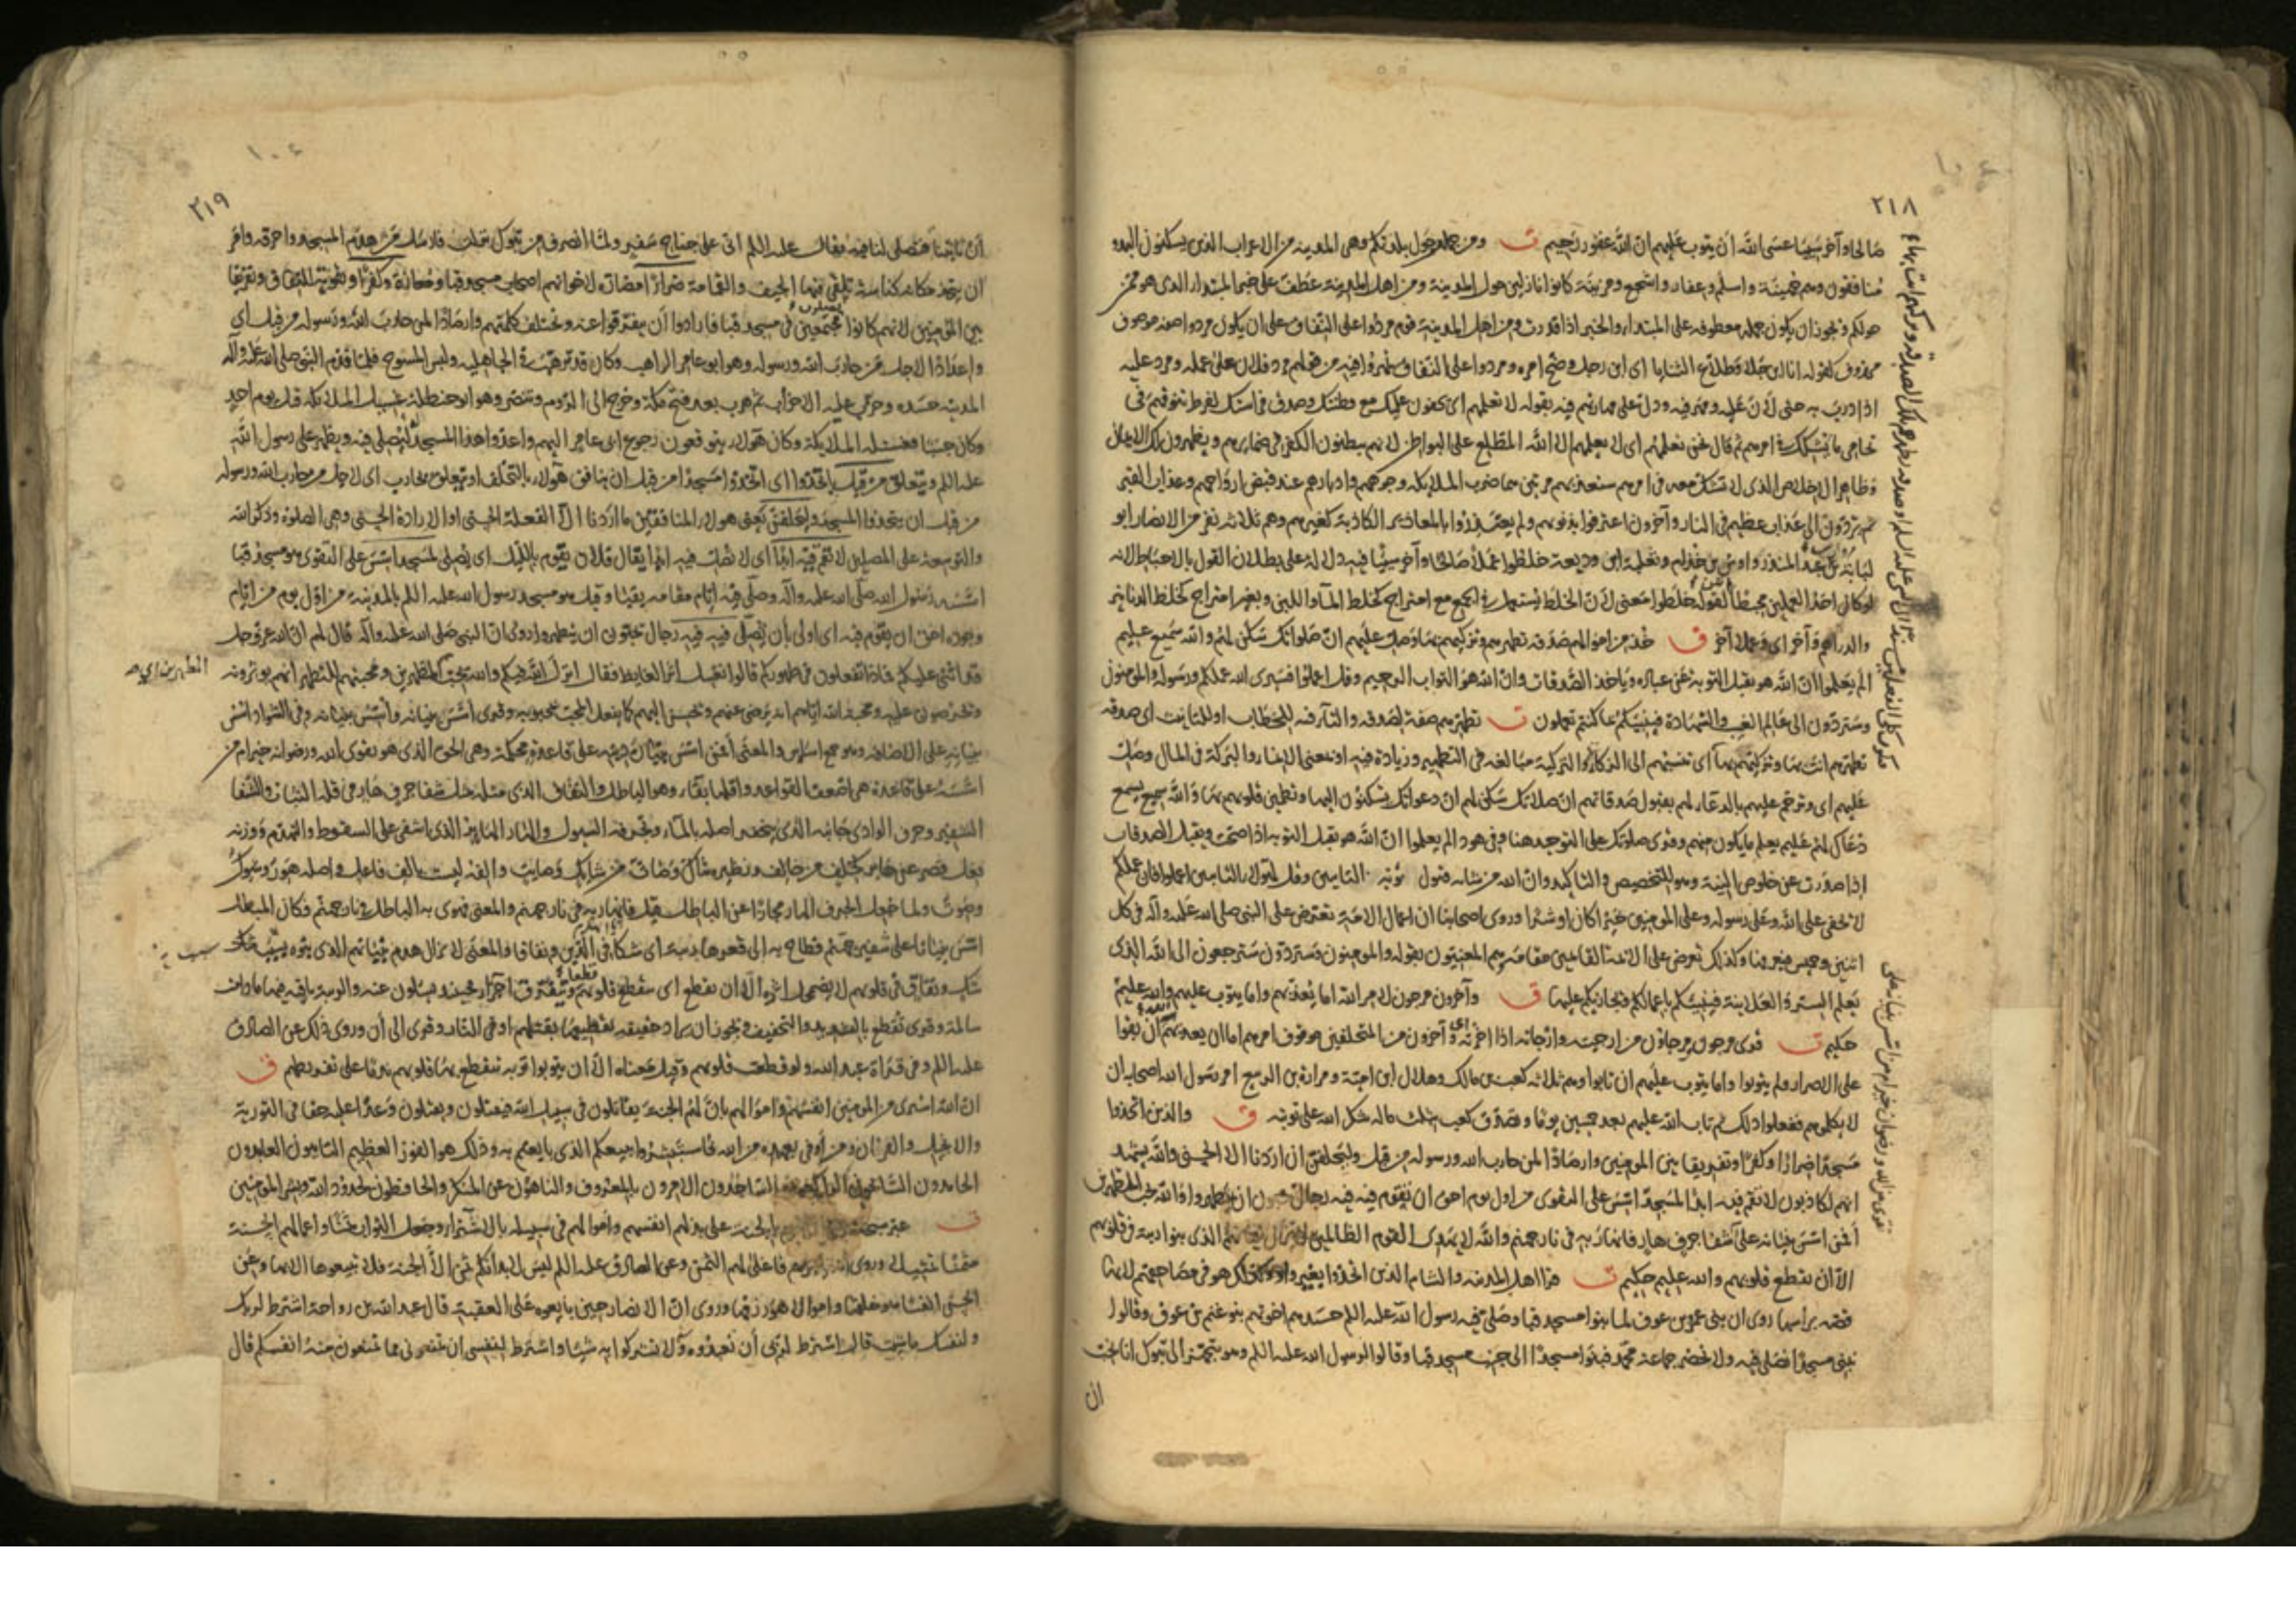 ٢١٨
صالحا وآخر سيئا عسى الله أن يتوب عليهم ان الله غفور رحيم ت ومن جملة حول بلدتكم وهى المدينة من الاعراب الذين يسكنون البدو
منافقون وهم جهينة واسلم وغفار واشجع ومزينة كانوا نازلين حول المدينة ومن اهل المدينة عطف على خبر المبتدا الذى هو ممن
حولكم ويجوز ان يكون جملة معطوفة على المبتدا والخبر اذا قدرت ومن اهل المدينة قوم مردوا على النفاق على ان يكون مردوا صفة موصوف
محذوف كقوله انا ابن جلا وطلاع الثنايا اى ابن رجل وضح امره ومردوا على النفاق تمهروا فيه من قولهم مرد فلان على عمله ومرد عليه
اذا درب به حتى لان عليه ومهر فيه ودل على مهارتهم فيه بقوله لا تعلمهم اى يخفون عليك مع فطنتك وصدق فراستك لفرط تنوقهم فى
تحامى ما يشكك فى امرهم ثم قال نحن نعلمهم اى لا يعلمهم الا الله المطلع على البواطن لانهم يبطنون الكفر فى ضمائرهم ويظهرون لك الايمان
وظاهر الاخلاص الذى لا تشك معه فى امرهم سنعذبهم مرتين هما ضرب الملائكة وجوههم وادبارهم عند قبض ارواحهم وعذاب القبر
ثم يردون الى عذاب عظيم فى النار وآخرون اعترفوا بذنوبهم ولم يعتذروا بالمعاذير الكاذبة كغيرهم وهم ثلاثة نفر من الانصار ابو
لبابة بن عبد المنذر واوس بن خذام وثعلبة ابن وديعة خلطوا عملا صالحا وآخر سيئا فيه دلالة على بطلان القول بالاحباط لانه
لو كان احد العملين محبطا لم يكن لقوله خلطوا معنى لان الخلط يستعمل فى الجمع مع امتزاج كخلط الماء واللبن وبغير امتزاج كخلط الدنانير
والدراهم وآخر اى وعملا آخر ق خذ من اموالهم صدقة تطهرهم وتزكيهم بها وصل عليهم ان صلواتك سكن لهم والله سميع عليم
الم يعلموا ان الله هو يقبل التوبة عن عباده وياخذ الصدقات وان الله هو التواب الرحيم وقل اعملوا فسيرى الله عملكم ورسوله والمومنون
وستردون الى عالم الغيب والشهادة فينبئكم بما كنتم تعملون ت تطهرهم صفة لصدقة والتاء فيه للخطاب او للتانيث اى صدقة
تطهرهم انت بها وتزكيهم بها اى تنسبهم الى الزكاء والتزكية مبالغة فى التطهير وزيادة فيه او بمعنى الانماء والبركة فى المال وصل
عليهم اى وترحم عليهم بالدعاء لهم بقبول صدقاتهم ان صلاتك سكن لهم ان دعواتك يسكنون اليها وتطمئن قلوبهم بها والله سميع يسمع
دعاك لهم عليم يعلم ما يكون منهم وقرى صلوتك على التوحيد هنا وفى هود الم يعلموا ان الله هو يقبل التوبة اذا صحت ويقبل الصدقات
اذا صدرت عن خلوص النية وهو للتخصيص والتاكيد وان الله من شانه قبول توبة التايبين وقل لهؤلاء التايبين اعملوا فان عملكم
لا يخفى على الله وعلى رسوله وعلى المومنين خيرا كان او شرا وروى اصحابنا ان اعمال الامة تعرض على النبى صلى الله عليه وآله فى كل
اثنين وخميس فيعرفها وكذلك تعرض على الائمة القائمين مقامه وهم المعنيون بقوله والمومنون وستردون سترجعون الى الله الذى
يعلم السر والعلانية فينبئكم باعمالكم فيجازيكم عليها ق وآخرون مرجون لامر الله اما يعذبهم واما يتوب عليهم والله عليم
حكيم ت قرى مرجون ومرجاون من ارجيته وارجاته اذا اخرته اى وآخرون من المتخلفين موقوف امرهم اما ان يعذبهم ان بقوا
على الاصرار ولم يتوبوا واما يتوب عليهم ان تابوا وهم ثلاثة كعب بن مالك وهلال ابن امية ومرارة بن الربيع امر رسول الله اصحابه ان
لا يكلموهم ففعلوا ذلك ثم تاب الله عليهم بعد خمسين يوما وتصدق كعب بثلث ماله شكر الله على توبته ق والذين اتخذوا
مسجدا ضرارا وكفرا وتفريقا بين المومنين وارصادا لمن حارب الله ورسوله من قبل وليحلفن ان اردنا الا الحسنى والله يشهد
انهم لكاذبون لا تقم فيه ابدا لمسجد اسس على التقوى من اول يوم احق ان تقوم فيه فيه رجال يحبون ان يتطهروا والله يحب المطهرين
أفمن اسس بنيانه على شفا جرف هار فانهار به فى نار جهنم والله لا يهدى القوم الظالمين لا يزال بنيانهم الذى بنوا ريبة فى قلوبهم
الا ان تقطع قلوبهم والله عليم حكيم ت قرا اهل المدينة والشام الذين اتخذوا بغير واو وكذلك هو فى مصاحفهم لانها
قصة براسها روى ان بنى عمرو بن عوف لما بنوا مسجد قبا وصلى فيه رسول الله عليه السلم حسدهم اخوتهم بنو غنم بن عوف وقالوا
نبنى مسجدا نصلى فيه ولا نحضر جماعة محمد فبنوا مسجدا الى جنب مسجد قبا وقالوا لرسول الله عليه السلم وهو يتجهز الى تبوك انا نحب
ان
تقوى من الله ورضوان خير ام من اسس بنيانه على
٢١٩
أن تاتينا فتصلى لنا فيه فقال عليه السلم انى على جناح سفر ولما انصرف من تبوك نزلت فارسل من هدم المسجد واحرقه وامر
ان يتخذ مكانه كناسة تلقى فيها الجيف والقمامة ضرارا مضارة لاخوانهم اصحاب مسجد قبا ومعازة وكفرا وتقوية للنفاق وتفريقا
بين المومنين لانهم كانوا يصلون مجتمعين فى مسجد قبا فارادوا أن يتفرقوا عنه وتختلف كلمتهم وارصادا لمن حارب الله ورسوله من قبل اى
واعدادا لاجل من حارب الله ورسوله وهو ابو عامر الراهب وكان قد ترهب فى الجاهلية ولبس المسوح فلما قدم النبى صلى الله عليه وآله
المدينة حسده وحزب عليه الاحزاب ثم هرب بعد فتح مكة وخرج الى الروم وتنصر وهو ابو حنظلة غسيل الملائكة قتل يوم احد
وكان جنبا فغسله الملائكة وكان هؤلاء يتوقعون رجوع ابى عامر اليهم واعدوا هذا المسجد له ليصلى فيه ويظهر على رسول الله
عليه السلم ويتعلق من قبل باتخذوا اى اتخذوا مسجدا من قبل ان ينافق هؤلاء بالتخلف او يتعلق بحارب اى لاجل من حارب الله ورسوله
من قبل ان يتخذوا المسجد وليحلفن يعنى هولاء المنافقين ما اردنا الا الفعلة الحسنى او الارادة الحسنى وهى الصلوة وذكر الله
والتوسعة على المصلين لا تقم فيه ابدا اى لا تصل فيه ابدا يقال فلان يقوم بالليل اى يصلى لمسجد اسس على التقوى هو مسجد قبا
اسسه رسول الله صلى الله عليه وآله وصلى فيه ايام مقامه بقبا وقيل هو مسجد رسول الله عليه السلم بالمدينة من اول يوم من ايام
وجوده احق ان يقوم فيه اى اولى بأن تصلى فيه فيه رجال يحبون ان يتطهروا وروى ان النبى صلى الله عليه وآله قال لهم ان الله عز وجل
قد اثنى عليكم فماذا تفعلون فى طهوركم قالوا نغسل اثر الغايط فقال انزل الله فيكم والله يحب المطهرين ومحبتهم للتطهر انهم يوثرونه
ويحرصون عليه ومحبة الله اياهم انه يرضى عنهم ويحسن اليهم كما يفعل المحب بمحبوبه وقرى أسس بنيانه وأسس بنيانه وفى الشواذ اسس
بنيانه على الاضافة وهو جمع اساس والمعنى أفمن اسس بنيان دينه على قاعدة محكمة وهى الحق الذى هو تقوى الله ورضوانه خير ام من
اسسه على قاعدة هى اضعف القواعد واقلها بقاء وهو الباطل والنفاق الذى مثله مثل شفا جرف هار فى قلة الثبات والشفا
الشفير وجرف الوادى جانبه الذى يتحفر اصله بالماء وتجرفه السيول والهار الهاير الذى اشفى على السقوط والتهدم ووزنه
فعل قصر عن هاير كخلف من خالف ونظيره شاك وصات من شايك وصايت والفه ليست بالف فاعل واصله هور وشوك
وصوت ولما جعل الجرف الهار مجازا عن الباطل قيل فانهار به فى نار جهنم والمعنى فهوى به الباطل فى نار جهنم فكان المبطل
اسس بنيانا على شفير جهنم فطاح به الى قعرها ريبة اى شكا فى الدين ونفاقا والمعنى لا يزال هدم بنيانهم الذى بنوه سبب شك
شك ونفاق فى قلوبهم لا يضمحل اثره الا ان تقطع اى تنقطع قلوبهم قطعا وتتفرق اجزاء فحينئذ يسلون عنه والريبة باقية فيها ما دامت
سالمة وقرى تقطع بالتشديد والتخفيف ويجوز ان يراد حقيقة تقطيعها بقتلهم او فى النار وقرى الى أن وروى ذلك عن الصادق
عليه السلم وفى قراة عبد الله ولو قطعت قلوبهم وقيل معناه الا ان يتوبوا توبة تتقطع بها قلوبهم ندما على تفريطهم ق
ان الله اشترى من المومنين انفسهم واموالهم بان لهم الجنة يقاتلون فى سبيل الله فيقتلون ويقتلون وعدا عليه حقا فى التورية
والانجيل والقرآن ومن اوفى بعهده من الله فاستبشروا ببيعكم الذى بايعتم به وذلك هو الفوز العظيم التايبون العابدون
الحامدون السائحون الراكعون الساجدون الآمرون بالمعروف والناهون عن المنكر والحافظون لحدود الله وبشر المومنين
ت عبر سبحانه بالجنة على بذلهم انفسهم واموالهم فى سبيله بالاشتراء وجعل الثواب ثمنا واعمالهم الحسنة
مثمنا تمثيلا وروى فاغلى لهم الثمن وعن الصادق عليه السلم ليس لابدانكم ثمن الا الجنة فلا تبيعوها الا بها وعن
الحسن انفسا هو خلقها واموالا هو رزقها وروى ان الانصار حين بايعوه على العقبة قال عبد الله بن رواحة اشترط لربك
ولنفسك ما شئت قال اشترط لربى أن تعبدوه ولا تشركوا به شيئا واشترط لنفسى ان تمنعونى مما تمنعون منه انفسكم قال